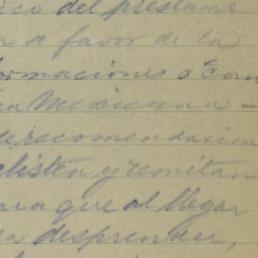 ico del préstamo
a favor de la
ormaciones o Com
Mexicana -
recomendacion
alisten y remitan
para que al llegar
a desprender,